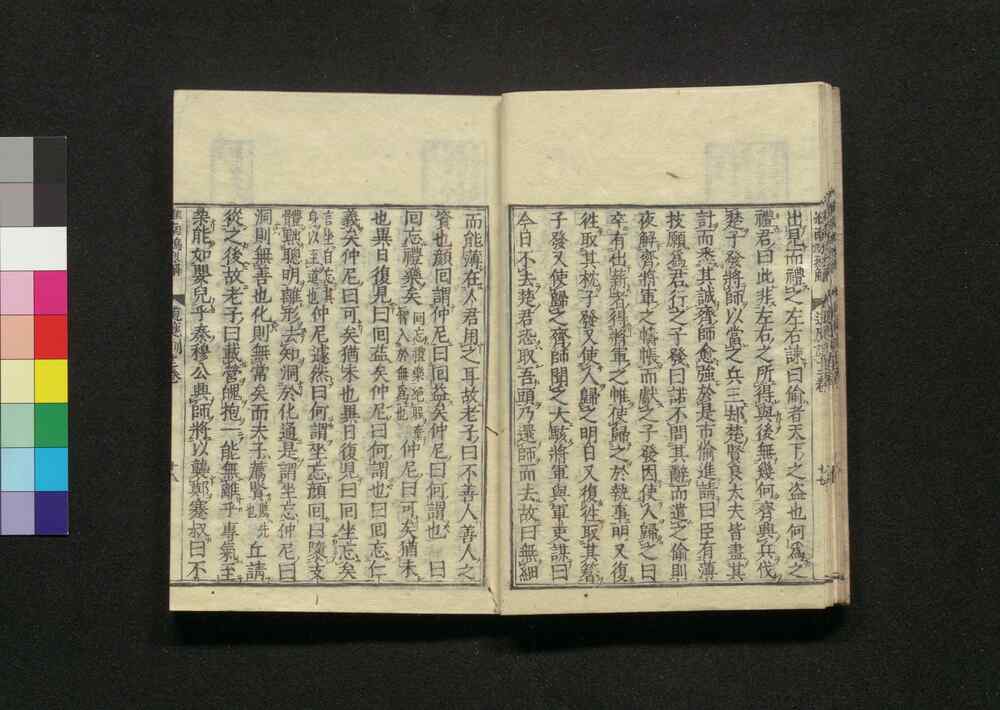 出見而禮之左右諫曰偷者天下之盜也何爲之
禮君曰此非左右之所得與後無幾何齊興兵伐
楚子發將師以當之兵三却楚賢良大夫皆盡其
計而悉其誠齊師愈強於是市偷進請曰臣有薄
技願爲君行之子發曰諾不問其辭而遣之偷則
夜解齊將軍之幬帳而獻之子發因使人歸之曰
卒有出薪者得將軍之帷使歸之於執事明又復
徃取其枕子發又使人歸之明日又復徃取其簪
子發又使歸之齊師聞之大駭將軍與軍吏謀曰
今日不去楚君恐取吾頭乃還師而去故曰無細
而能薄在人君用之耳故老子曰不善人善人之
資也顔回謂仲尼曰回益矣仲尼曰何謂也曰
回忘禮樂矣仲尼曰可矣猶未
也異日復見曰回益矣仲尼曰何謂也曰回忘仁
義矣仲尼曰可矣猶未也異日復見曰回坐忘矣
仲尼遽然曰何謂坐忘顔回曰隳支
體黜聰明離形去知洞於化通是謂坐忘仲尼曰
洞則無善也化則無常矣而夫子薦賢丘請
從之後故老子曰載營魄抱一能無離乎專氣至
柔能如嬰兒乎秦穆公興師將以襲鄭蹇叔曰不